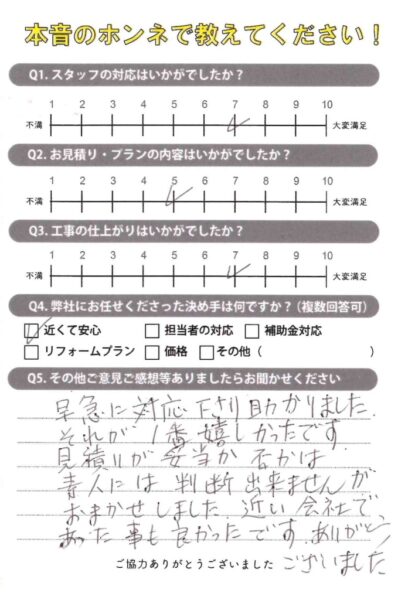 本音のホンネで教えてください！
Q1. スタッフの対応はいかがでしたか？
1 2 3 4 5 6 7 8 9 10
不満 大変満足
Q2. お見積り・プランの内容はいかがでしたか？
1 2 3 4 5 6 7 8 9 10
不満 大変満足
Q3. 工事の仕上がりはいかがでしたか？
1 2 3 4 5 6 7 8 9 10
不満 大変満足
Q4. 弊社にお任せくださった決め手は何ですか？（複数回答可）
近くて安心 担当者の対応 補助金対応
リフォームプラン 価格 その他（ ）
Q5. その他ご意見ご感想等ありましたらお聞かせください
早急に対応下さり助かりました.
それが1番嬉しかったです
見積りが妥当か否かは
素人には判断出来ませんが
おまかせしました. 近い会社で、
あった事も良かったです. ありがとう
ございました
ご協力ありがとうございました